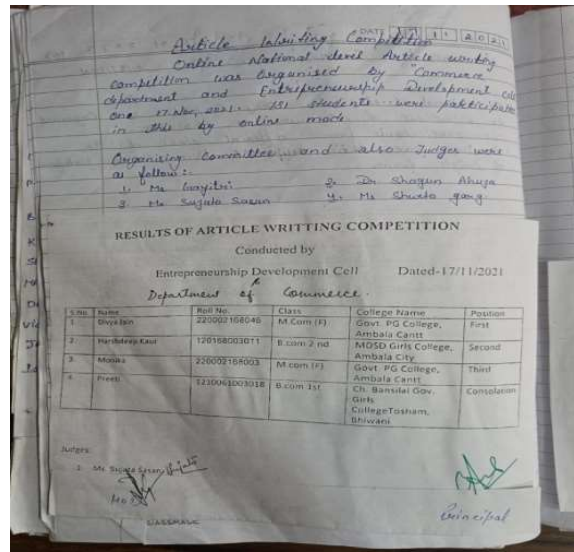 DATE 17 11 2021
Article Writing Competition
Online National level Article writing
competition was organised by "Commerce
department and Entrepreneurship Development Cell
one 17 Nov, 2021. 151 students were participate
in this by online mode
Organising committee and also Judges were
as follow:
1. Ms Gayitri 2. Dr Shagun Ahuja
3. Ms Sujata Sasun 4. Ms Shweta garg
RESULTS OF ARTICLE WRITTING COMPETITION
Conducted by
Entrepreneurship Development Cell Dated-17/11/2021
Department of Commerce.
S.No. Name Roll No. Class College Name Position
1 Divya Jain 220002168046 M.Com (F) Govt. PG College, First
Ambala Cantt
2 Harshdeep Kaur 120168003011 B.com 2 nd MDSD Girls College, Second
Ambala City
3. Monika 220002168003 M.com (F) Govt. PG College, Third
Ambala Cantt
4 Preeti 1230061003018 B.com 1st Ch. Bansilal Gov. Consolation
Girls
CollegeTosham,
Bhiwani
Judges:
2. Ms. Sujata Sasan
CLASSMATE
Principal